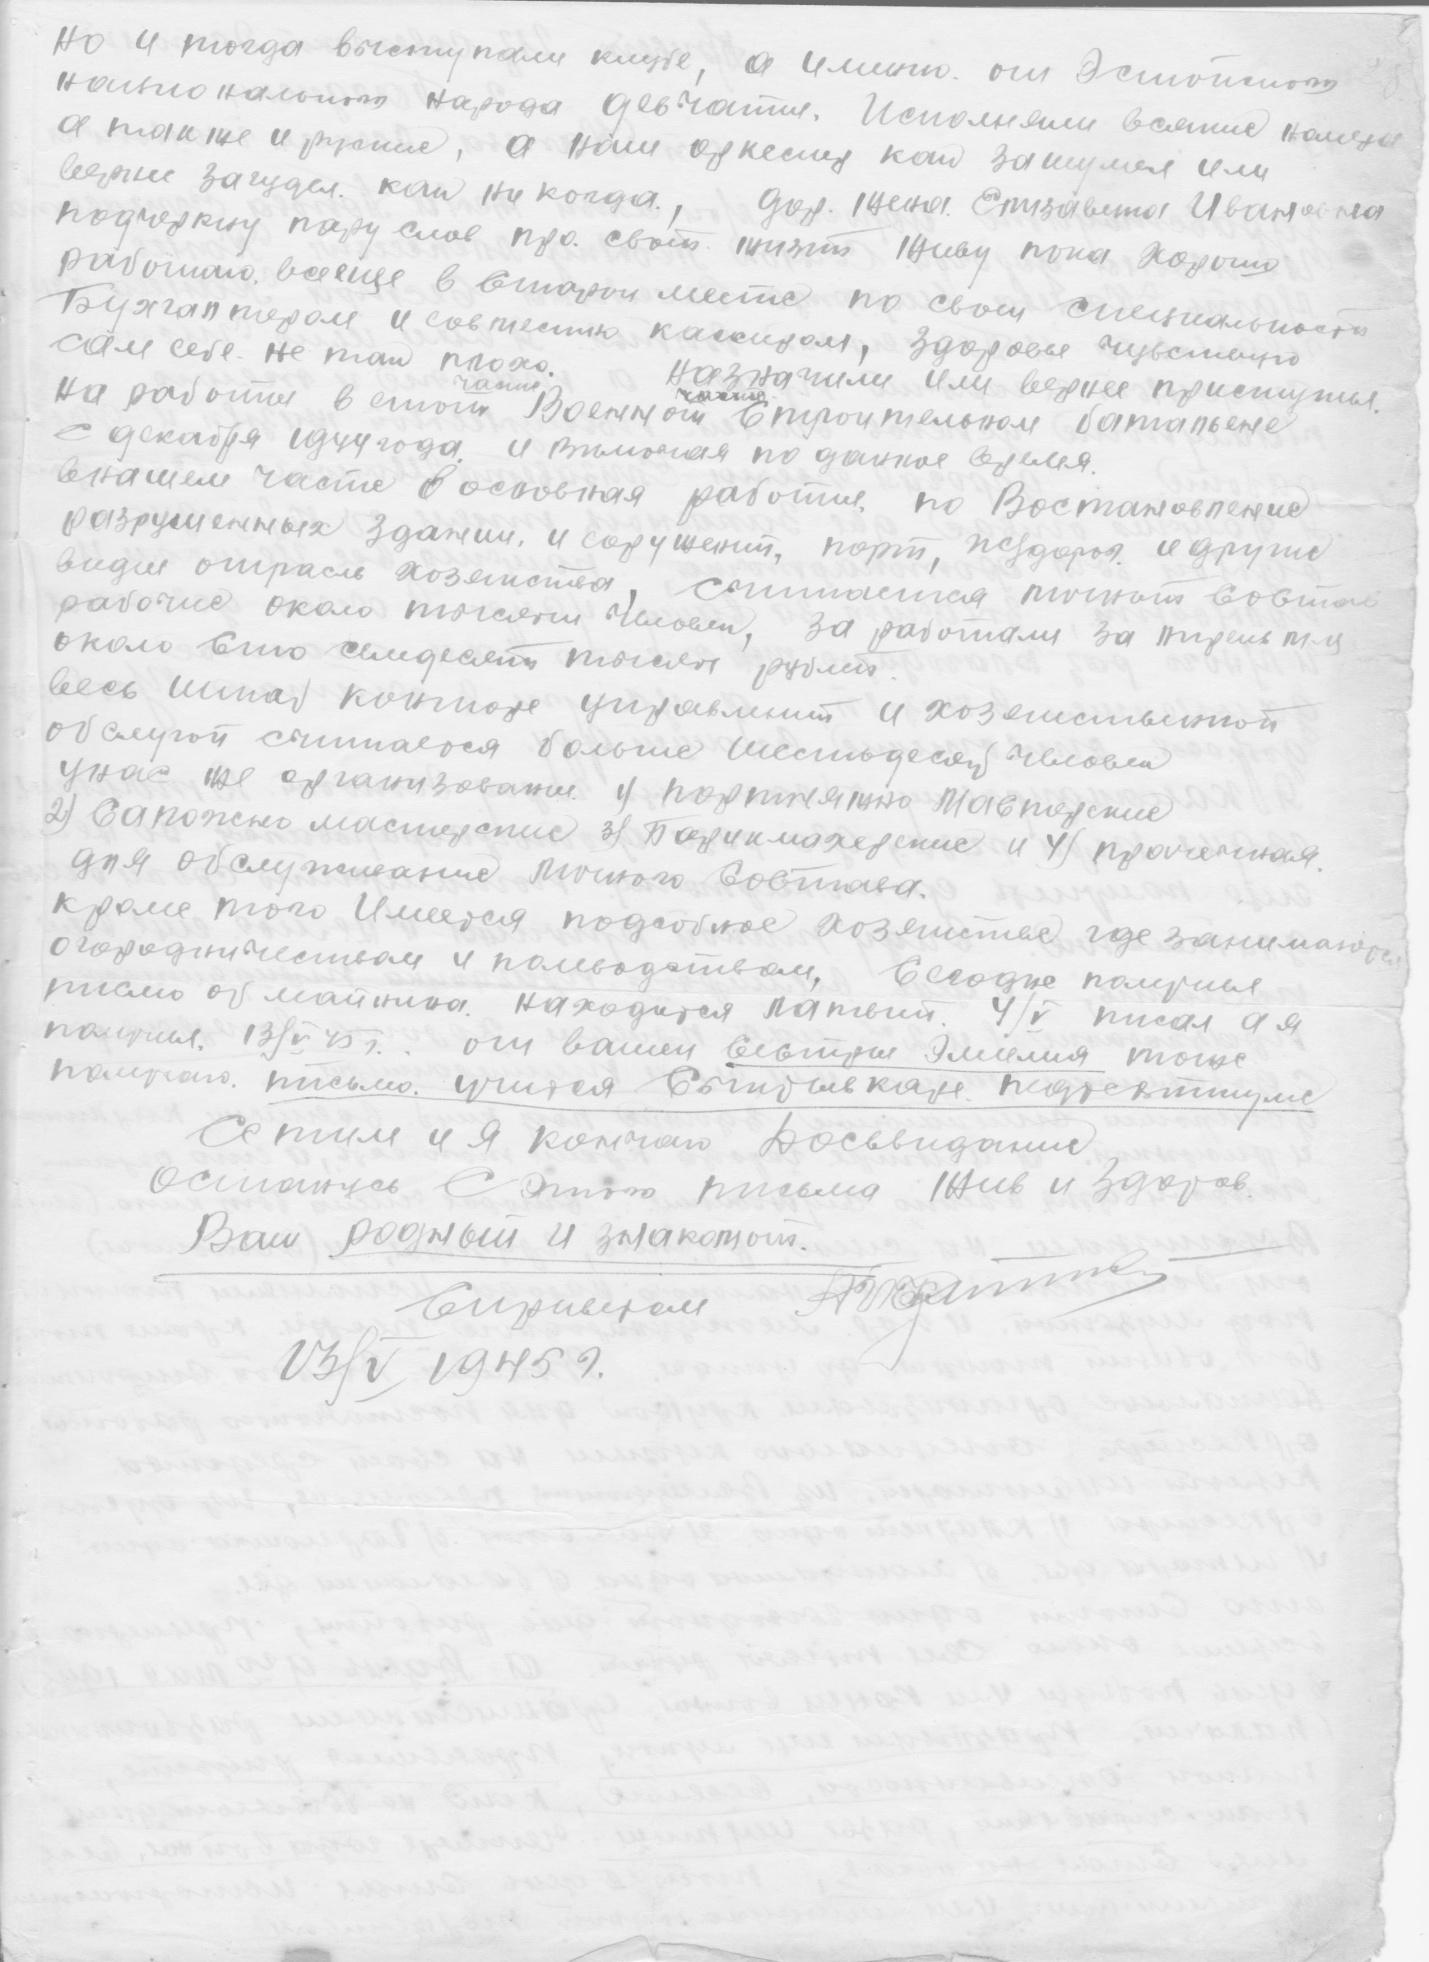 но и тогда выступали клубе, а именно. от Эстонского
национального народа девчати. Исполнями всякие номера
а также и русские, а наш оркестр как зашумел или
верне загудел. как ни когда., дор. жена. Елизавета Ивановна
подчеркну пару слов про. свой. жизн живу пока хорошо
работаю. все еще в старом месте по своей специальности
Бухгалтером и совместно кассиром, здоровье чувствую
сам себе. не так плохо. назначили или вернее приступил.
на работы в этой части Военной части Строительном батальене
с декабря 1944 года. и включая по данное время.
внашем части в основная работы. по Востановление
разрушенных здании. и соружений, порт, ж/дорог. и другие
видии отрасль хозяиства, считается личной состав
рабочие около тысячи человек, за работали за апрель м-ц
около сто семдесять тысяч рублей.
весь штаб конторе управлений и хозяиственной
обслугой считаеся больше шестьдесят человек
унас же организованы 1) портняжно мастерские
2) Сапожно мастерские 3) Парикмахерские и 4) прачечная.
для обслуживание личного состава.
кроме того Имеется подсобное хозяистве где занимаются
огородничеством и полеводством, Сегодне получил
писмо от майника. находится Латвий. 4/V писал а я
получил. 13/V 45 г. от вашей сестры Эмилия тоже
получаю. письмо. учится Сыктывкаре. пединституте
Сетим и я кончаю Досввидание
Останусь с этого письма жив и здоров.
Ваш родный и знакомой.
Сприветом
13/V 1945 г.